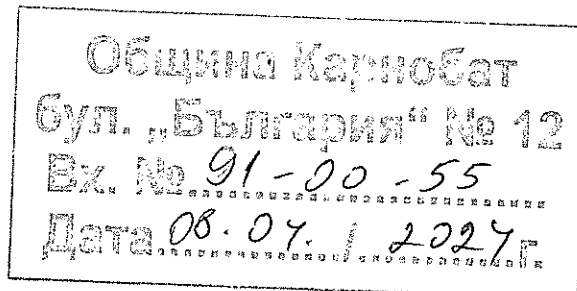 Община Карнобат
бул. „България“ № 12
Вх. № 91-00-55
Дата 08.04. / 2024 г.